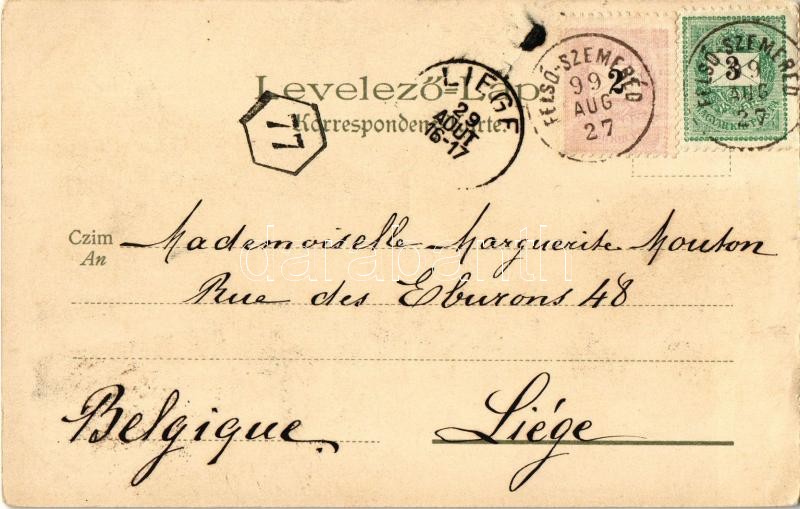 Levelező-Lap
Korrespondenz-Karte.
77
LIEGE
29
AOUT
16-17
FELSŐ-SZEMERÉD
2
99
AUG
27
FELSŐ-SZEMERÉD
3
99
AUG
27
Czim
An
Mademoiselle Marguerite Mouton
Rue des Eburons 48
darabanth
Belgique.
Liége